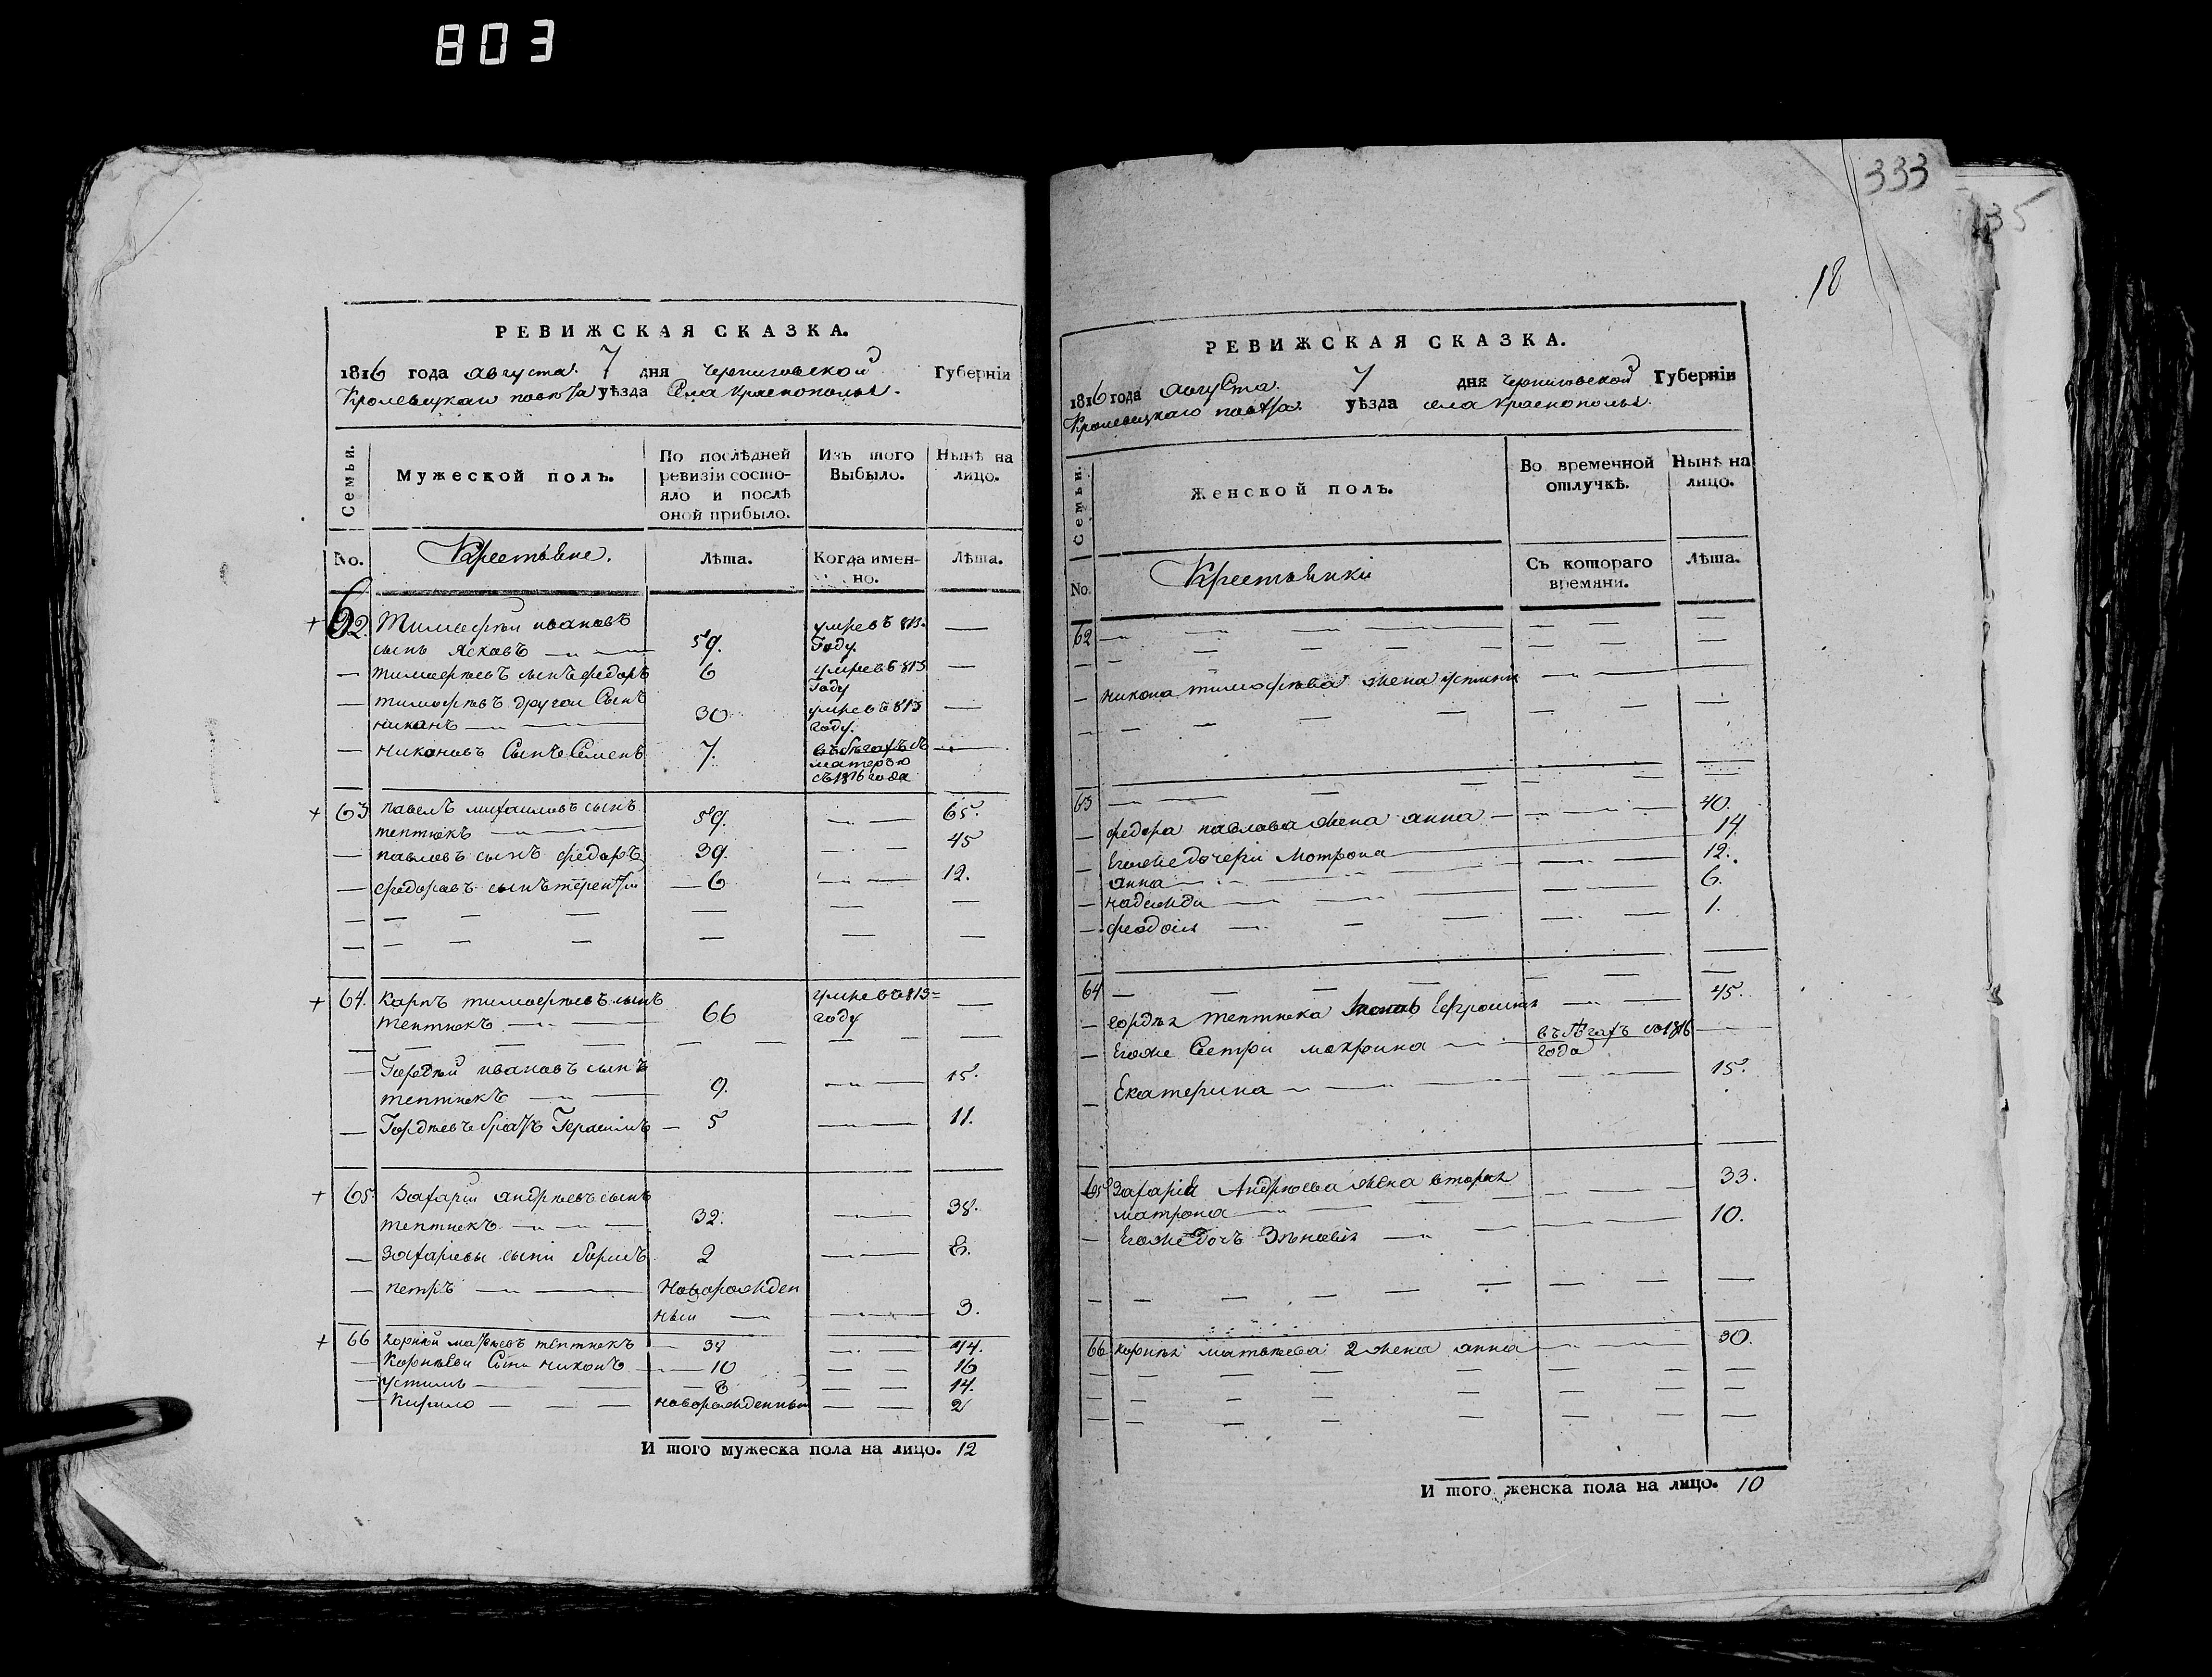 803
РЕВИЖСКАЯ СКАЗКА.
1816 года августа 7 дня Черниговской Губернiи
Кролевецкаго повѣта уѣзда Села Краснополья.
Семьи.
Мужеской полъ.
По послѣдней ревизiи состояло и послѣ оной прибыло.
Изъ того Выбыло.
Нынѣ на лицо.
No.
Крестьяне.
Лѣта.
Когда именно.
Лѣта.
62. Тимофѣй ивановъ
сынъ 59. умре въ 813. Году.
тимофѣевъ сынъ федоръ 6 умре въ 813 Году
тимофѣевъ другой Сынъ
никонъ 30 умре въ 813 году.
никоновъ Сынъ Семенъ 7. въ бѣгахъ съ матерью съ 1816 года
63 павелъ михаиловъ сынъ
тептюкъ 59. 65.
павловъ сынъ федоръ 39. 45
федоровъ сынъ терентiй 6 12.
64. Карпъ тимофѣевъ сынъ
тептюкъ 66 умре въ 813 году
Гордѣй ивановъ сынъ
тептюкъ 9. 15.
Гордѣевъ братъ Герасимъ 5 11.
65 Захарiй андрѣевъ сынъ
тептюкъ 32. 38.
Захарiевы сыни 2 8.
петръ новорожден
ный 3.
66 корнѣй матвѣевъ тептюкъ 38 44.
Корнѣеви Сини никонъ 10 16
устимъ 8 14.
Кирило новорожденный 2
И того мужеска пола на лицо. 12
333
35
18
РЕВИЖСКАЯ СКАЗКА.
1816 года августа 7 дня Черниговской Губернiи
Кролевецкаго повѣта уѣзда села Краснополья.
Семьи.
Женской полъ.
Во временной отлучкѣ.
Нынѣ на лицо.
No.
Крестьянки
Съ котораго времяни.
Лѣта.
62
никона тимофѣева жена
63
федора павлова жена анна 40.
Егоже дочери Мотрона 14
анна 12.
надежда 6.
феодосiя 1.
64
гордѣя тептюка Ефросинiя 45.
Егоже Сестри макрина въ бѣгахъ со 1816 года
Екатерина 15.
65 Захарiя Андрѣева жена вторая
матрона 33.
Егоже дочъ Зѣновiя 10.
66 корнѣя матвѣева 2 жена анна 30.
И того женска пола на лицо. 10